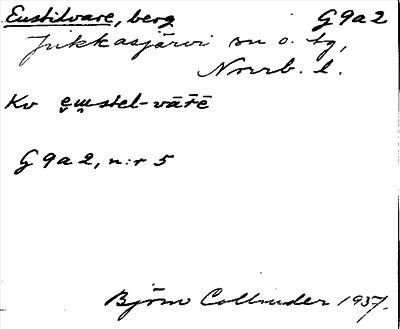 Eustitvare, berg G9a2
Jukkasjärvi sn o. tg,
Norrb. l.
Kv e̮u̮stel-vārē
G9a2, n:r 5
Björn Collinder 1937.